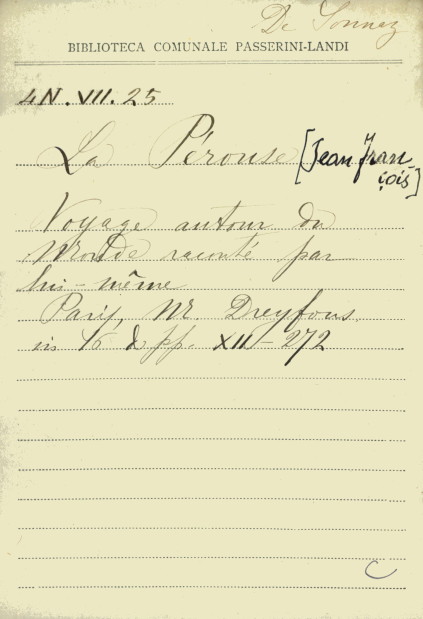 De Sonnaz
BIBLIOTECA COMUNALE PASSERINI-LANDI
4N.VII.25
La Pérouse [Jean Fran-
çois]
Voyage autour du
Monde raconté par
lui-même
Paris, M. Dreyfous.
in 16 pp. XII-272
C